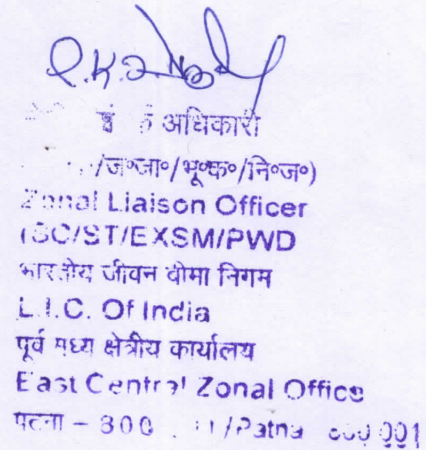 अधिकारी
/ज॰जा॰/भू॰क॰/नि॰ज॰)
Zonal Liaison Officer
(SC/ST/EXSM/PWD
भारतीय जीवन बीमा निगम
L.I.C. Of India
पूर्व मध्य क्षेत्रीय कार्यालय
East Central Zonal Office
पटना - 800 /Patna 800 001